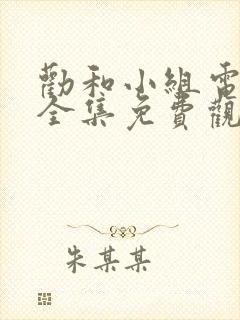 勸和小組電
全集免費觀
朱某某